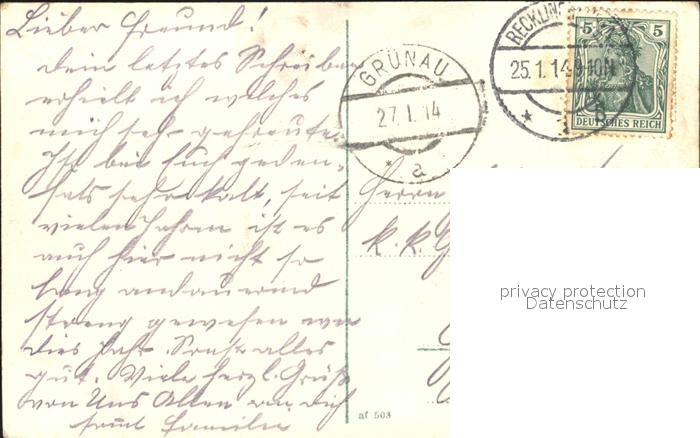 Lieber Freund!
Dein letztes Schreiben
erhielt ich welches
mich sehr gefreut.
Ist bei Euch jeden-
fals sehr kalt, seit
vielen Jahren ist es
auch hier nicht so
lang andauernd
streng gewesen wie
dies Jahr. Sonst alles
gut. Viele herzl. Grüße
von Uns Allen an Dich
samt Familie
GRÜNAU
27.1.14
* a
RECKLING
25.1.14.9-10N
*
5 5
DEUTSCHES REICH
Herrn
K. K.
privacy protection
Datenschutz
af 503